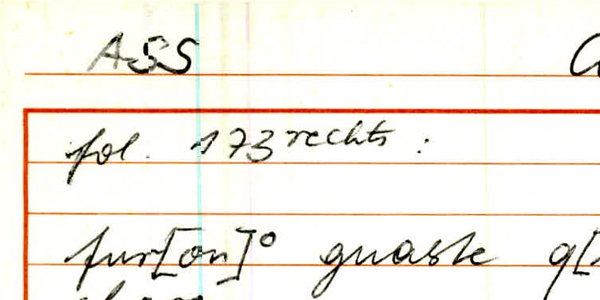 ASS
fol. 173 rechts :
fur[on]° guaste q[